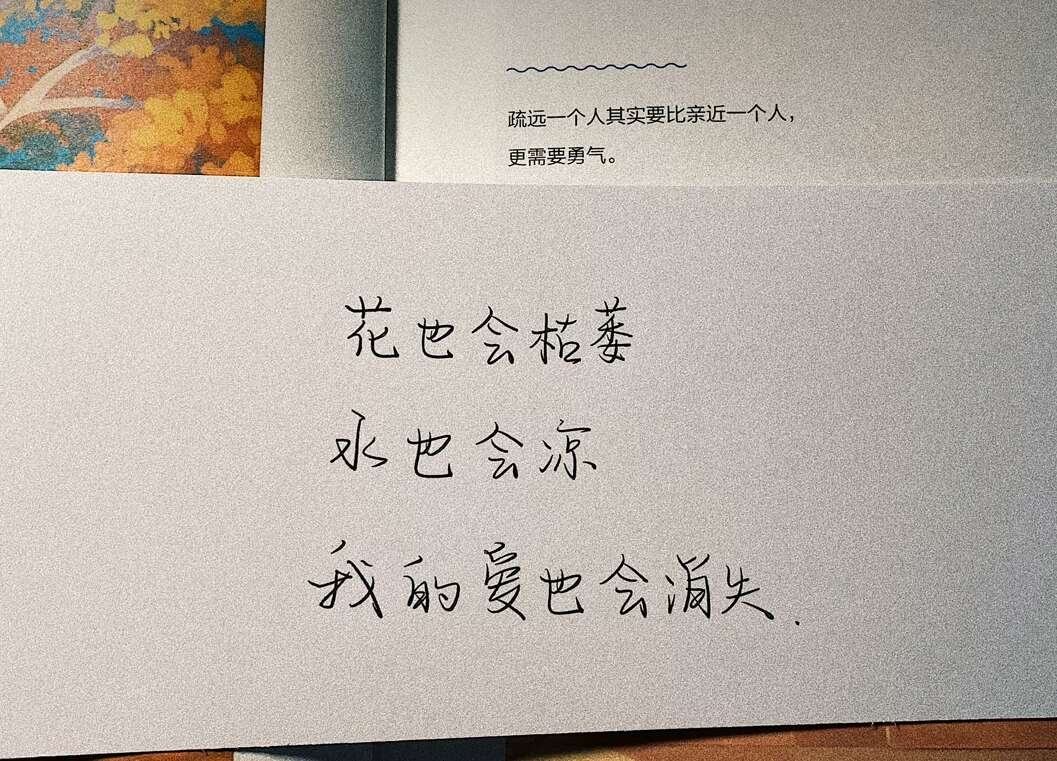 疏远一个人其实要比亲近一个人，
更需要勇气。
花也会枯萎
水也会凉
我的爱也会消失.